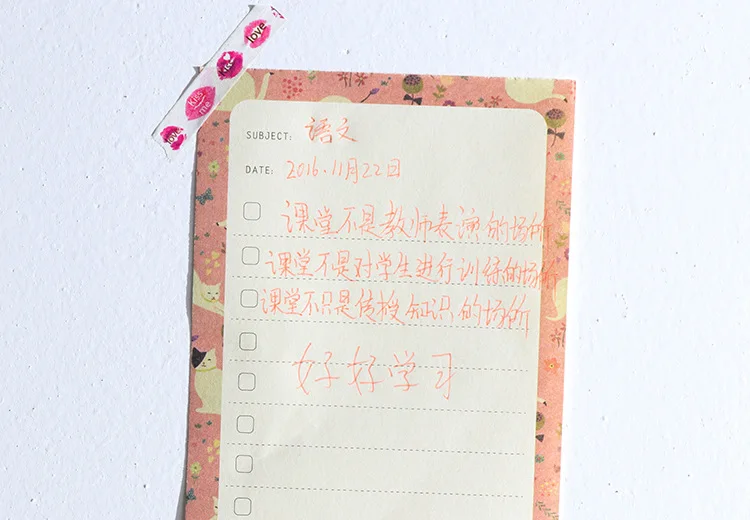 love
Kiss
Kiss me
love
SUBJECT: 语文
DATE: 2016.11月22日
课堂不是教师表演的场所
课堂不是对学生进行训练的场所
课堂不只是传授知识的场所
好好学习